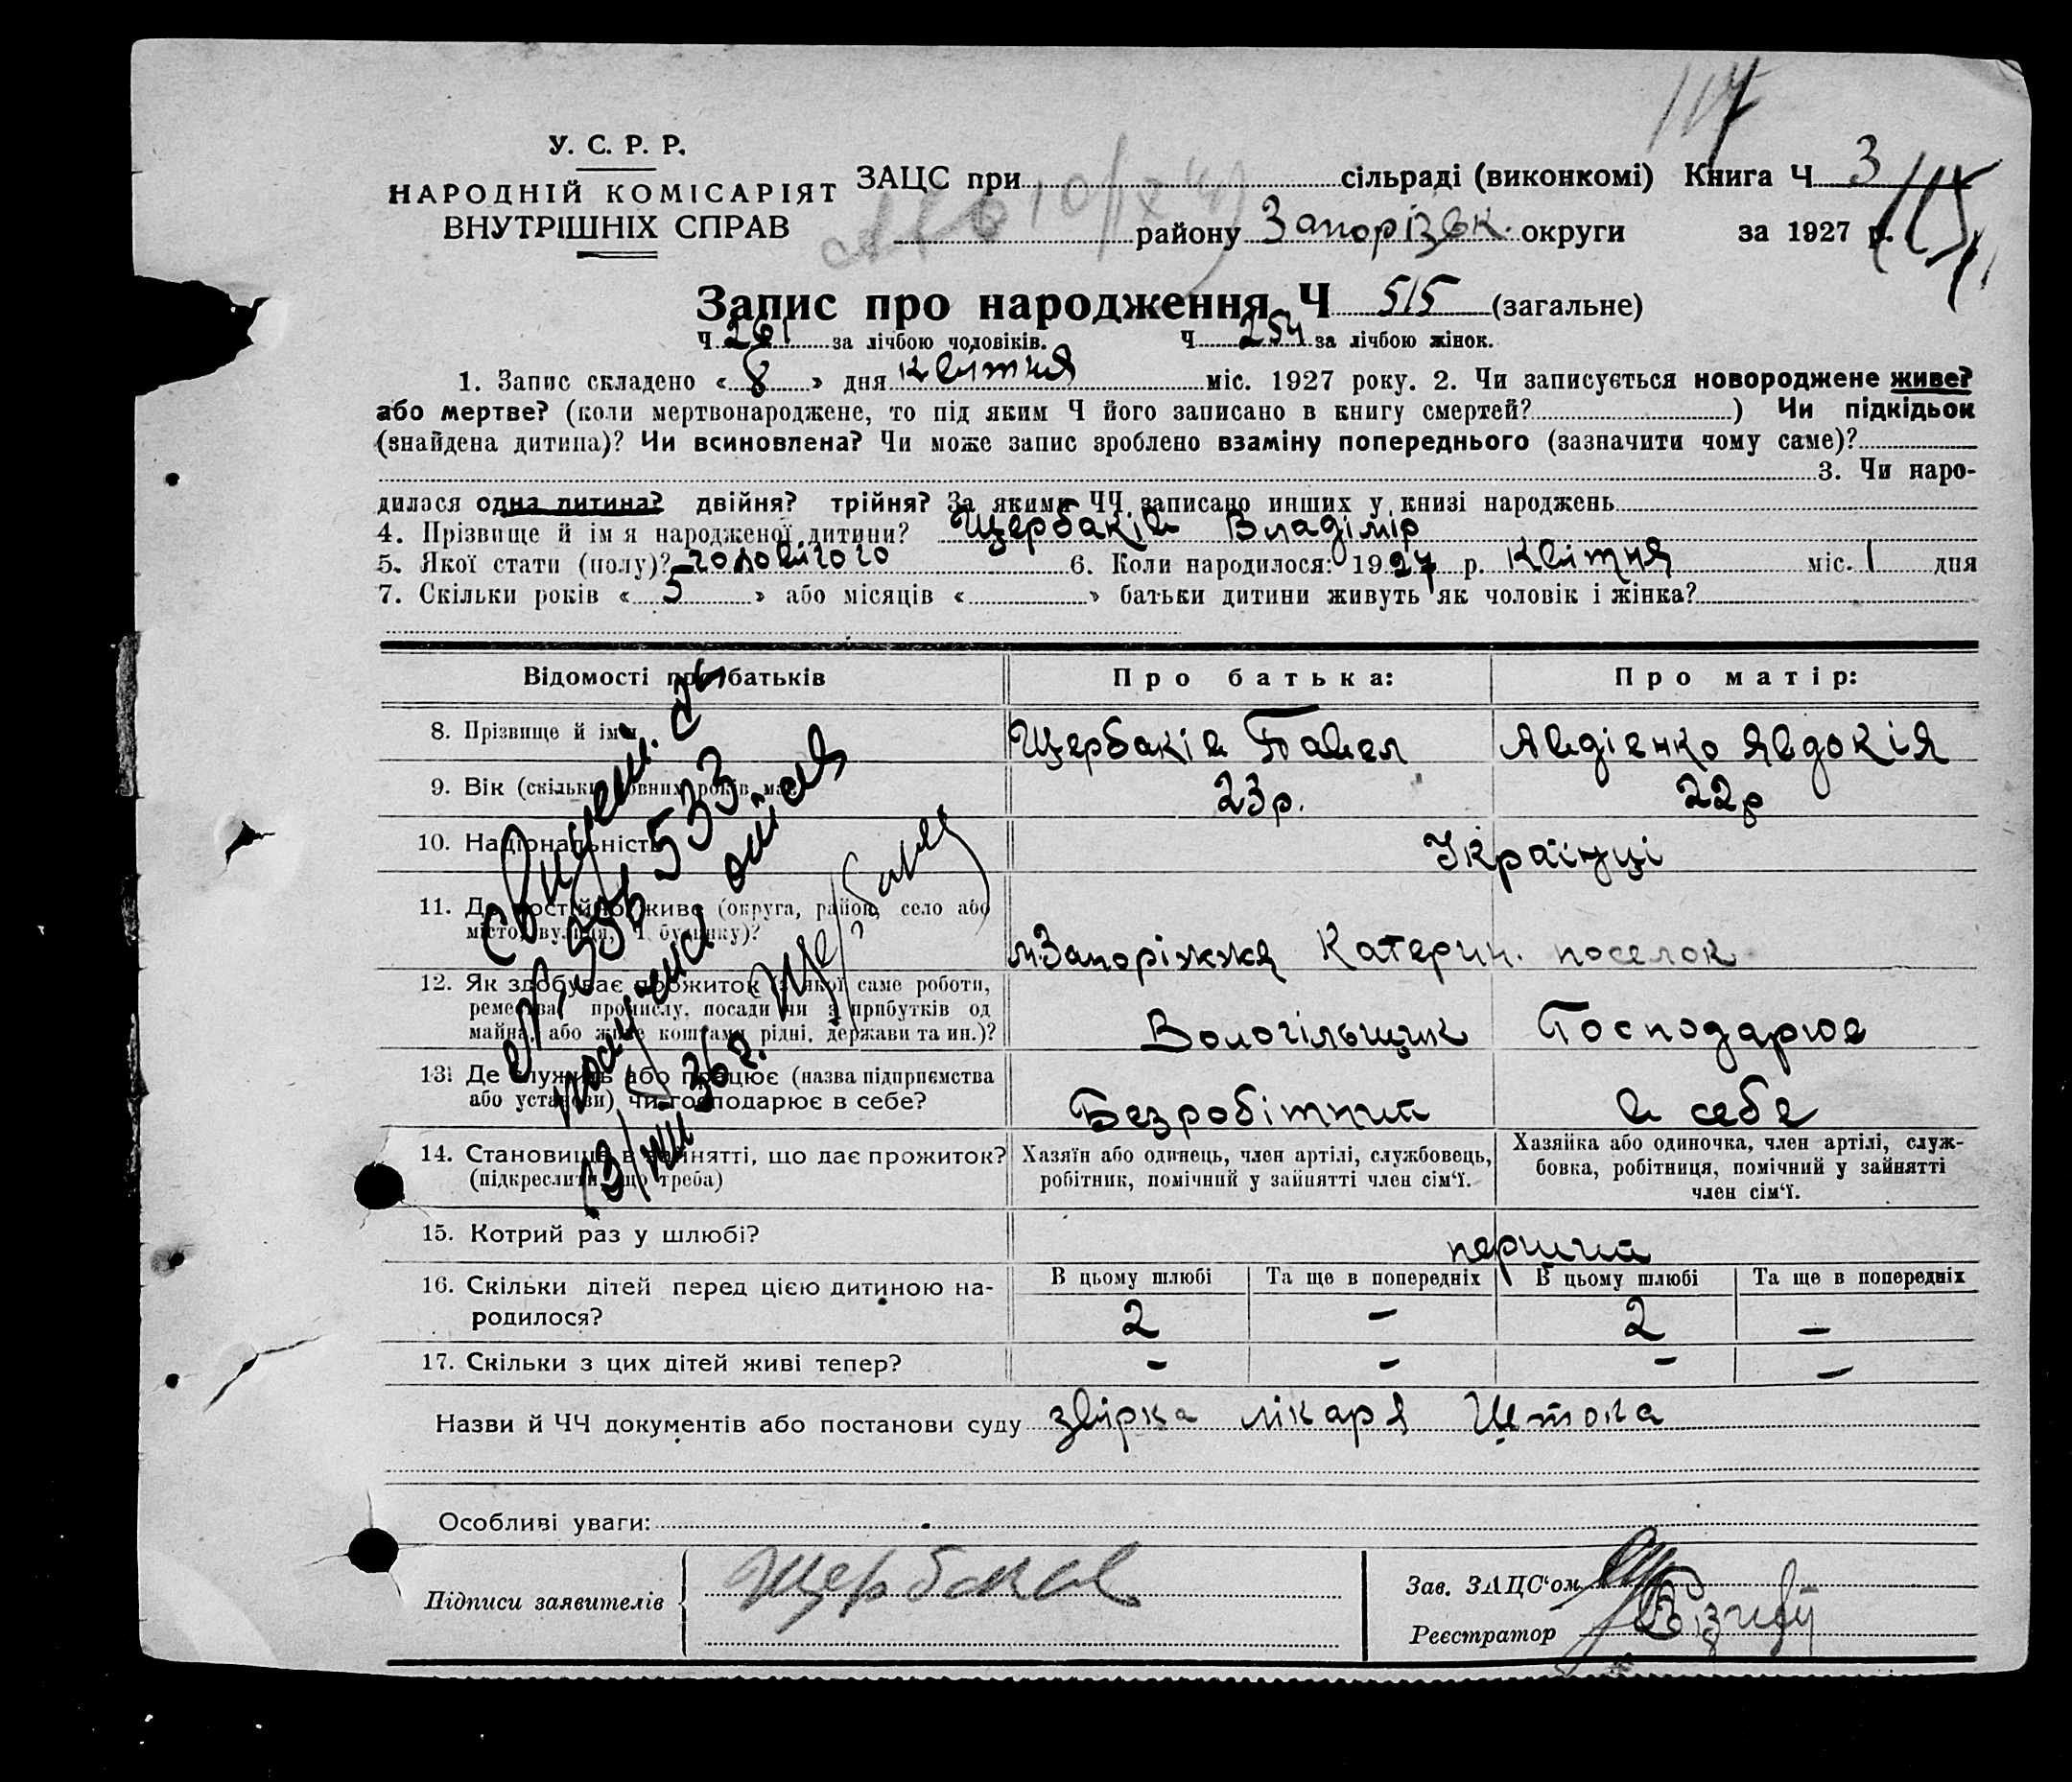 117
У. С. Р. Р.
НАРОДНІЙ КОМІСАРІЯТ
ВНУТРІШНІХ СПРАВ
ЗАЦС при сільраді (виконкомі) Книга Ч 3
115
району Запорізьк. округи за 1927 р.
Запис про народження Ч 515 (загальне)
Ч 261 за лічбою чоловіків. Ч 254 за лічбою жінок.
1. Запис складено « 8 » дня квітня міс. 1927 року. 2. Чи записується новороджене живе?
або мертве? (коли мертвонароджене, то під яким Ч його записано в книгу смертей? ) Чи підкідьок
(знайдена дитина)? Чи всиновлена? Чи може запис зроблено взаміну попереднього (зазначити чому саме)?
3. Чи наро-
дилася одна дитина? двійня? трійня? За якими ЧЧ записано инших у книзі народжень
4. Прізвище й ім я народженої дитини? Щербаків Владімір
5. Якої стати (полу)? чоловічого 6. Коли народилося: 1927 р. квітня міс. 1 дня
7. Скільки років « 5 » або місяців « » батьки дитини живуть як чоловік і жінка?
Відомості про батьків Про батька: Про матір:
8. Прізвище й ім'я Щербаків Павел Авдієнко Явдокія
9. Вік (скільки повних років має) 23р. 22р
10. Національність Українці
11. Де постійно живе (округа, район, село або
місто, вулиця, Ч будинку)? м.Запоріжжя Катерин. поселок
12. Як здобуває прожиток (з якої саме роботи,
ремества, промислу, посади чи з прибутків од
майна, або живе коштами рідні, держави та ин.)? Вологільщик Господарює
13. Де служить або працює (назва підприємства
або установи) чи господарює в себе? Безробітний в себе
14. Становище в зайнятті, що дає прожиток?
(підкреслити, що треба)
Хазяїн або одинець, член артілі, службовець,
робітник, помічний у зайнятті член сім‘ї.
Хазяйка або одиночка, член артілі, служ-
бовка, робітниця, помічний у зайнятті
член сім‘ї.
15. Котрий раз у шлюбі? перший
16. Скільки дітей перед цією дитиною на-
родилося?
В цьому шлюбі Та ще в попередніх В цьому шлюбі Та ще в попередніх
2 – 2 –
17. Скільки з цих дітей живі тепер? – – – –
Назви й ЧЧ документів або постанови суду звірка лікаря
Особливі уваги:
Підписи заявителів Щербаков
Зав. ЗАЦС‘ом
Реєстратор
533